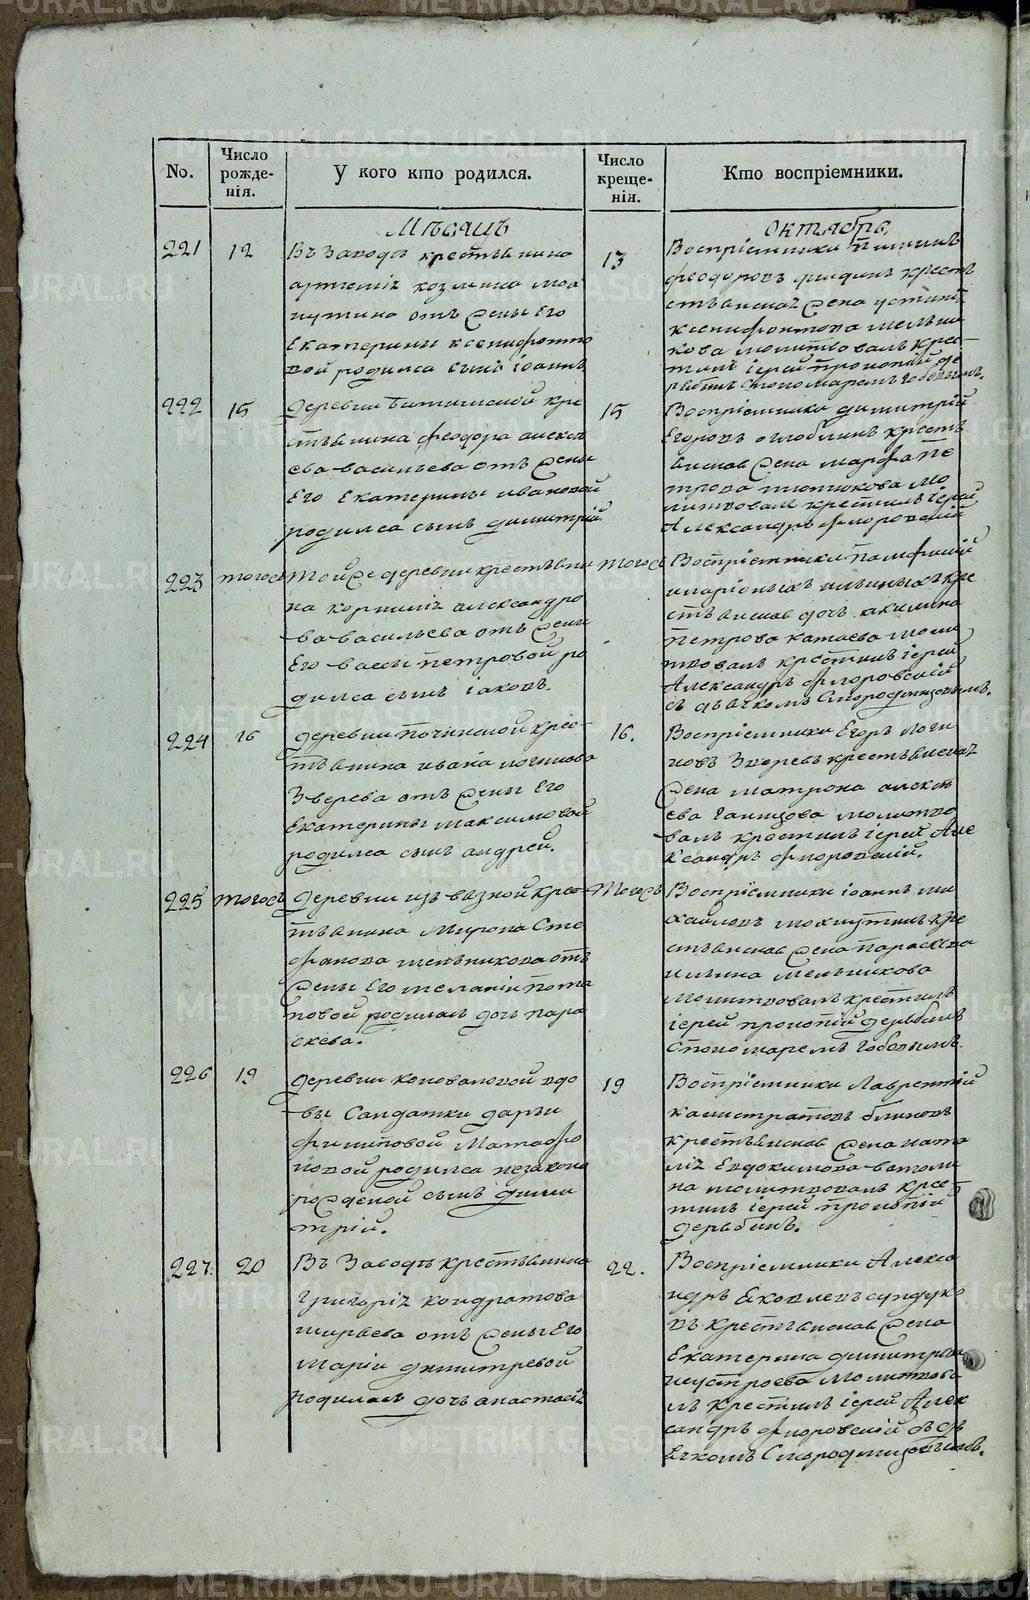 No.
Число рожде- нія.
У кого кто родился.
Число креще- нія.
Кто воспріемники.
Мѣсяцъ
октябрь
221
12
Въ Заводѣ крестьянина
артемія козмина мох
нутина отъ жены Его
Екатерины ксенофонто
вой родился сынъ іоаннъ
13
Воспріемники
феодоровъ кресть
янская жена устинія
ксенофонтова мельни
кова молитвовалъ крес
тилъ іерей прокопій де
рябинъ съ пономаремъ
222
15
деревни кре
стьянина феодора алексѣ
ева васильева отъ жены
Его Екатерины ивановой
родился сынъ димитрій
15
Воспріемники димитрій
Егоровъ оглоблинъ кресть
янская жена марфа пе
трова мо
литвовалъ крестилъ іерей
Александръ флоровскій
223
тогожъ
тойже деревни крестьяни
на корнилія александро
ва васильева отъ жены
Его вассы петровой ро
дился сынъ іаковъ.
тогожъ
Воспріемники памфилій
иларіоновъ кре
стьянская дочь акилина
петрова катаева моли
твовалъ крестилъ іерей
Александръ флоровскій
съ дьячкомъ Смородинцовымъ.
224
16
деревни починской крес
тьянина ивана логинова
Зверева отъ жены Его
Екатерины максимовой
родился сынъ андрей.
16.
Воспріемники Егоръ логи
новъ Зверевъ крестьянская
жена матрона алексѣ
ева молитво
валъ крестилъ іерей Але
ксандръ флоровскій.
225
тогожъ
деревни извязной крес
тьянина Мирона Сте
фанова мельникова отъ
жены Его меланіи пота
повой родилась дочь пара
скева.
Тогожъ
Воспріемники іоаннъ ми
хайловъ мохнутинъ кре
стьянская жена параскева
ильина мельникова
молитвовалъ крестилъ
іерей прокопій дерябинъ
с пономаремъ
226
19
деревни коноваловой вдо
вы Салдатки дарьи
филиповой Матафо
новой родился незаконо
рожденой сынъ дими
трій.
19
Воспріемники Лаврентій
калистратовъ блиновъ
крестьянская жена ната
лія Евдокимова ватоли
на молитвовалъ крес
тилъ іерей прокопій
дерябинъ.
227.
20
Въ Заводѣ крестьянина
григорія кондратова
ширяева отъ жены Его
маріи димитревой
родилась дочь анастасія
22.
Воспріемники Алекса
ндръ Яковлевъ сундуко
въ крестьянская жена
Екатерина димитріева
неустроева Молитвова
лъ крестилъ іерей Алек
сандръ флоровскій съ дь
ячкомъ Смородинцовымъ.